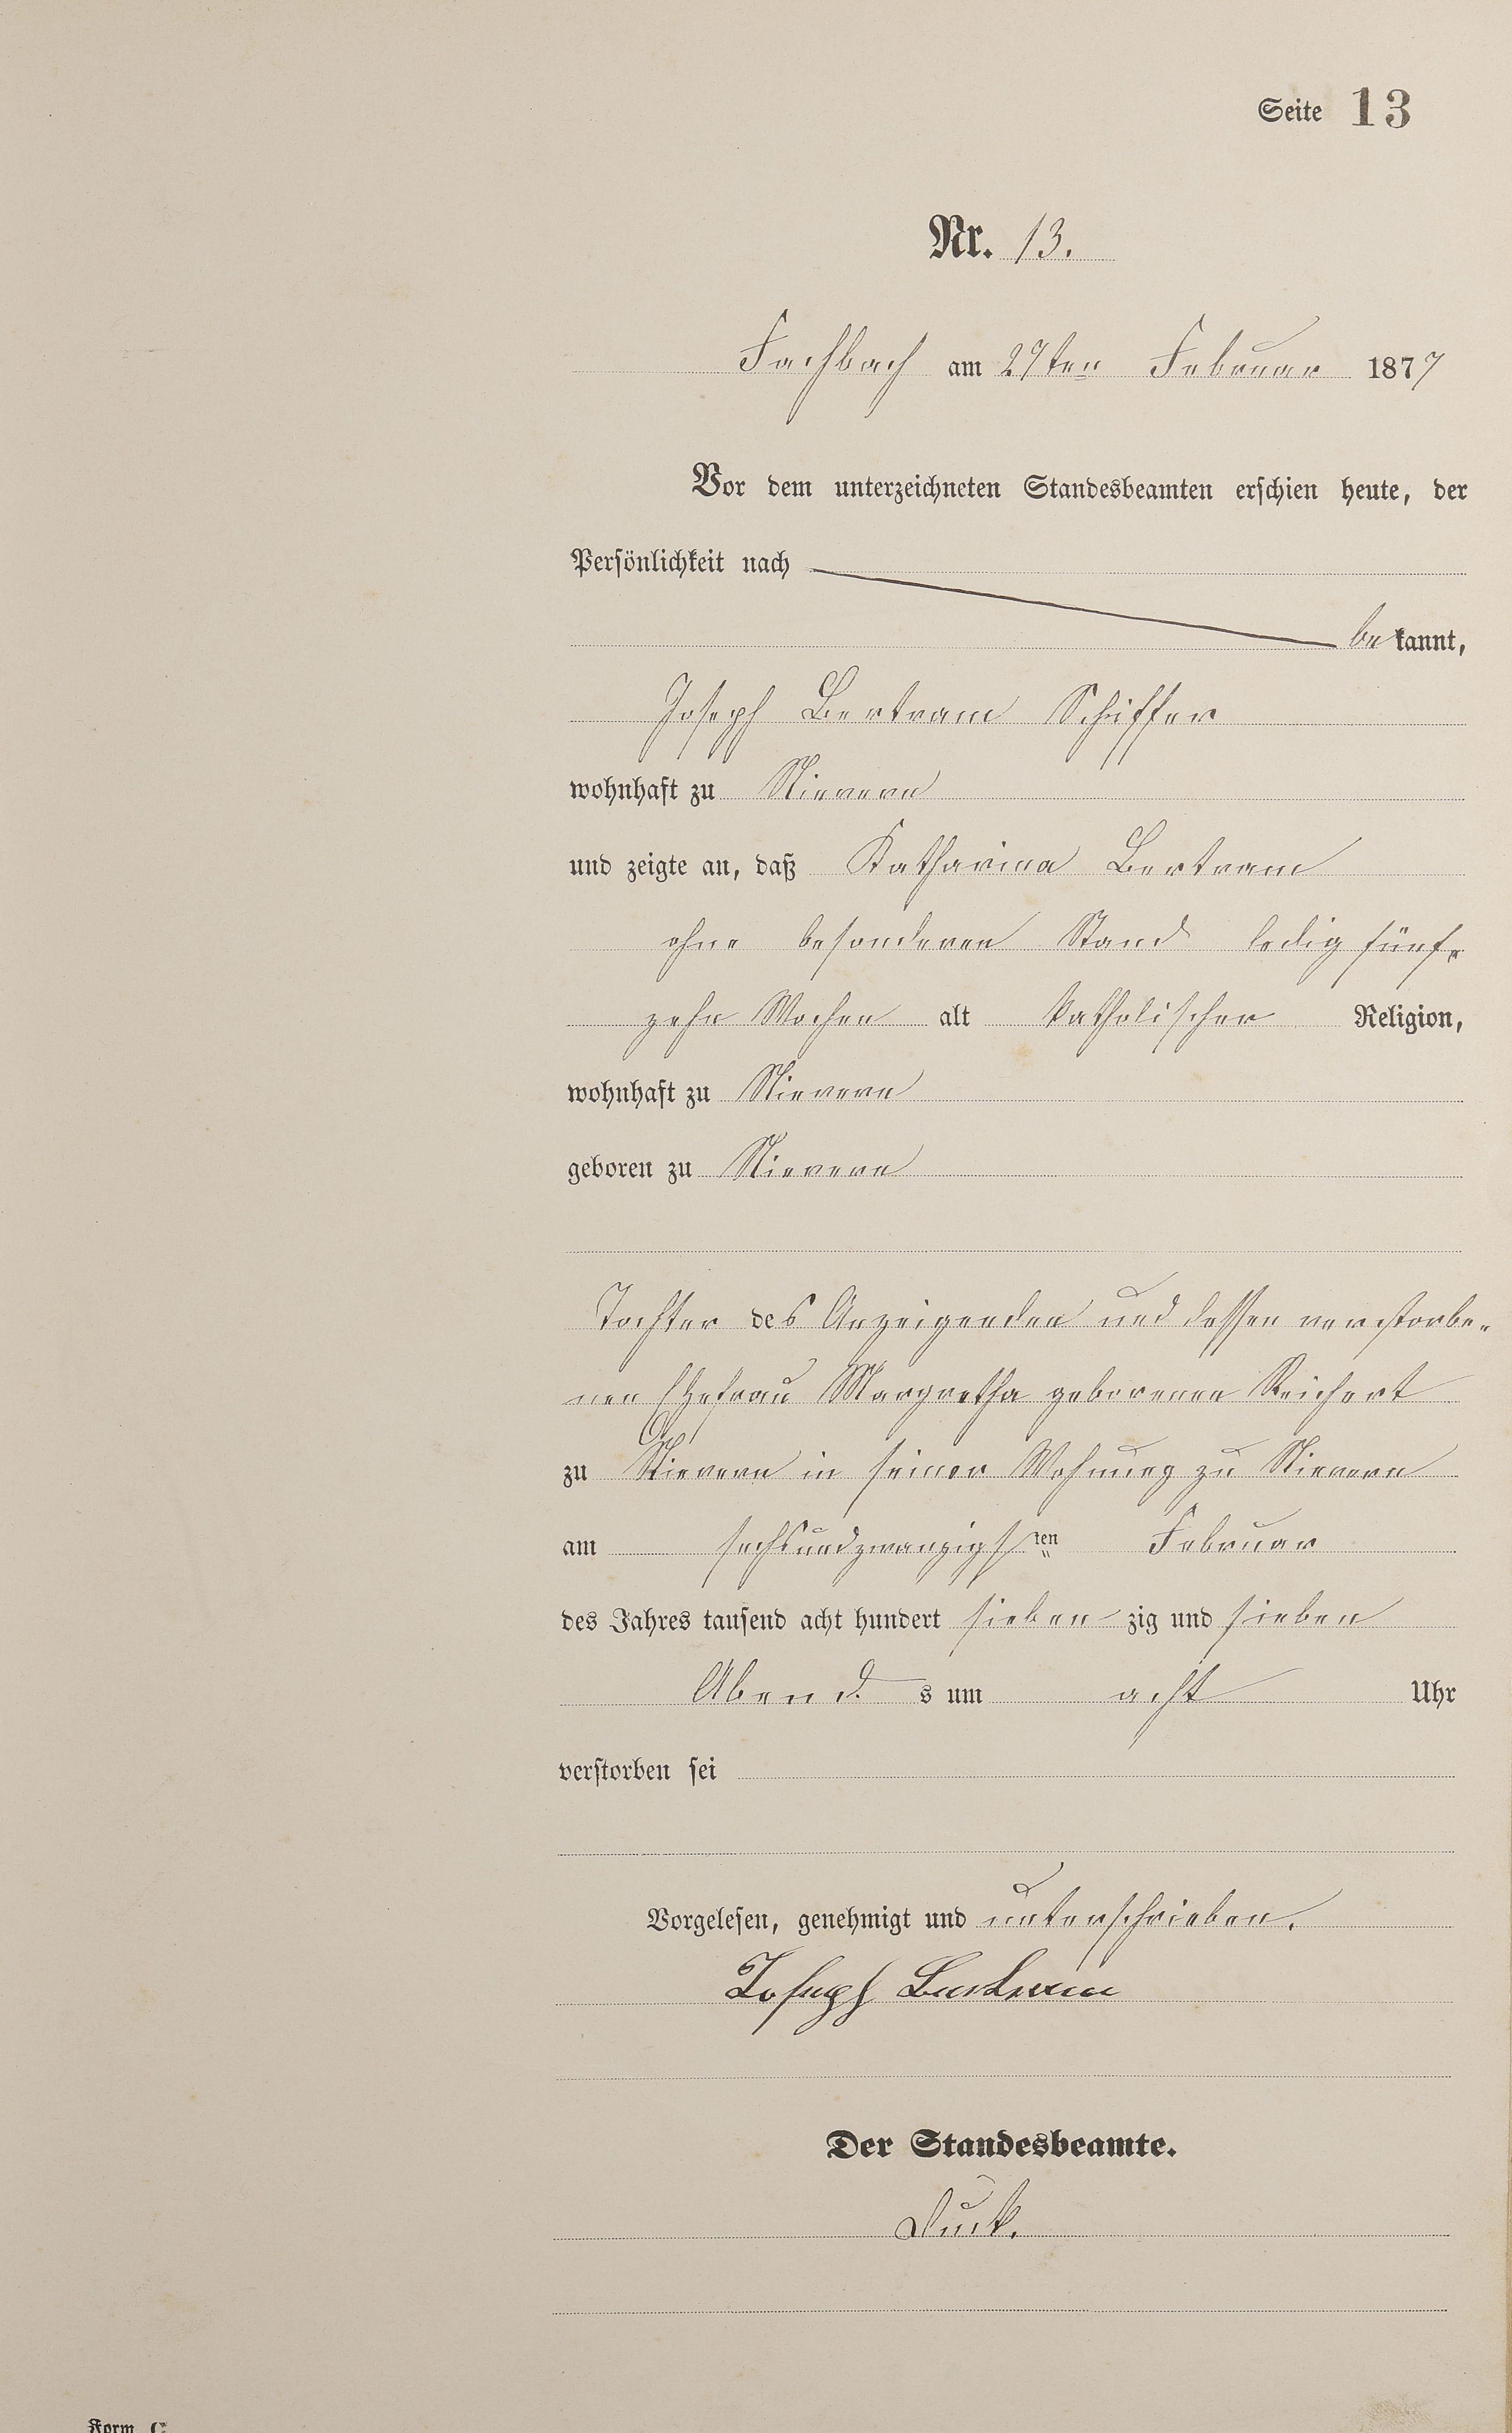 Seite 13
Nr. 13.
Fachbach am 27ten Februar 1877
Vor dem unterzeichneten Standesbeamten erschien heute, der
Persönlichkeit nach
bekannt,
Joseph Bertram Schiffer
wohnhaft zu Nievern
und zeigte an, daß Katharina Bertram
ohne besonderen Stand ledig fünf-
zehn Wochen alt katholischer Religion,
wohnhaft zu Nievern
geboren zu Nievern
Tochter des Anzeigenden und dessen verstorbe-
nen Ehefrau Margretha geborenen Reichert
zu Nievern in seiner Wohnung zu Nievern
am sechsundzwanzigsten Februar
des Jahres tausend acht hundert siebenzig und sieben
Abends um acht Uhr
verstorben sei
Vorgelesen, genehmigt und unterschrieben.
Joseph Bertram
Der Standesbeamte.
Form C